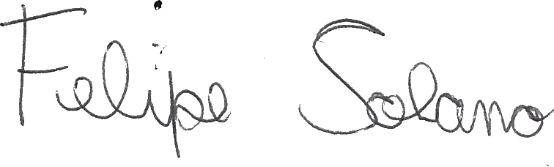 Felipe Solano